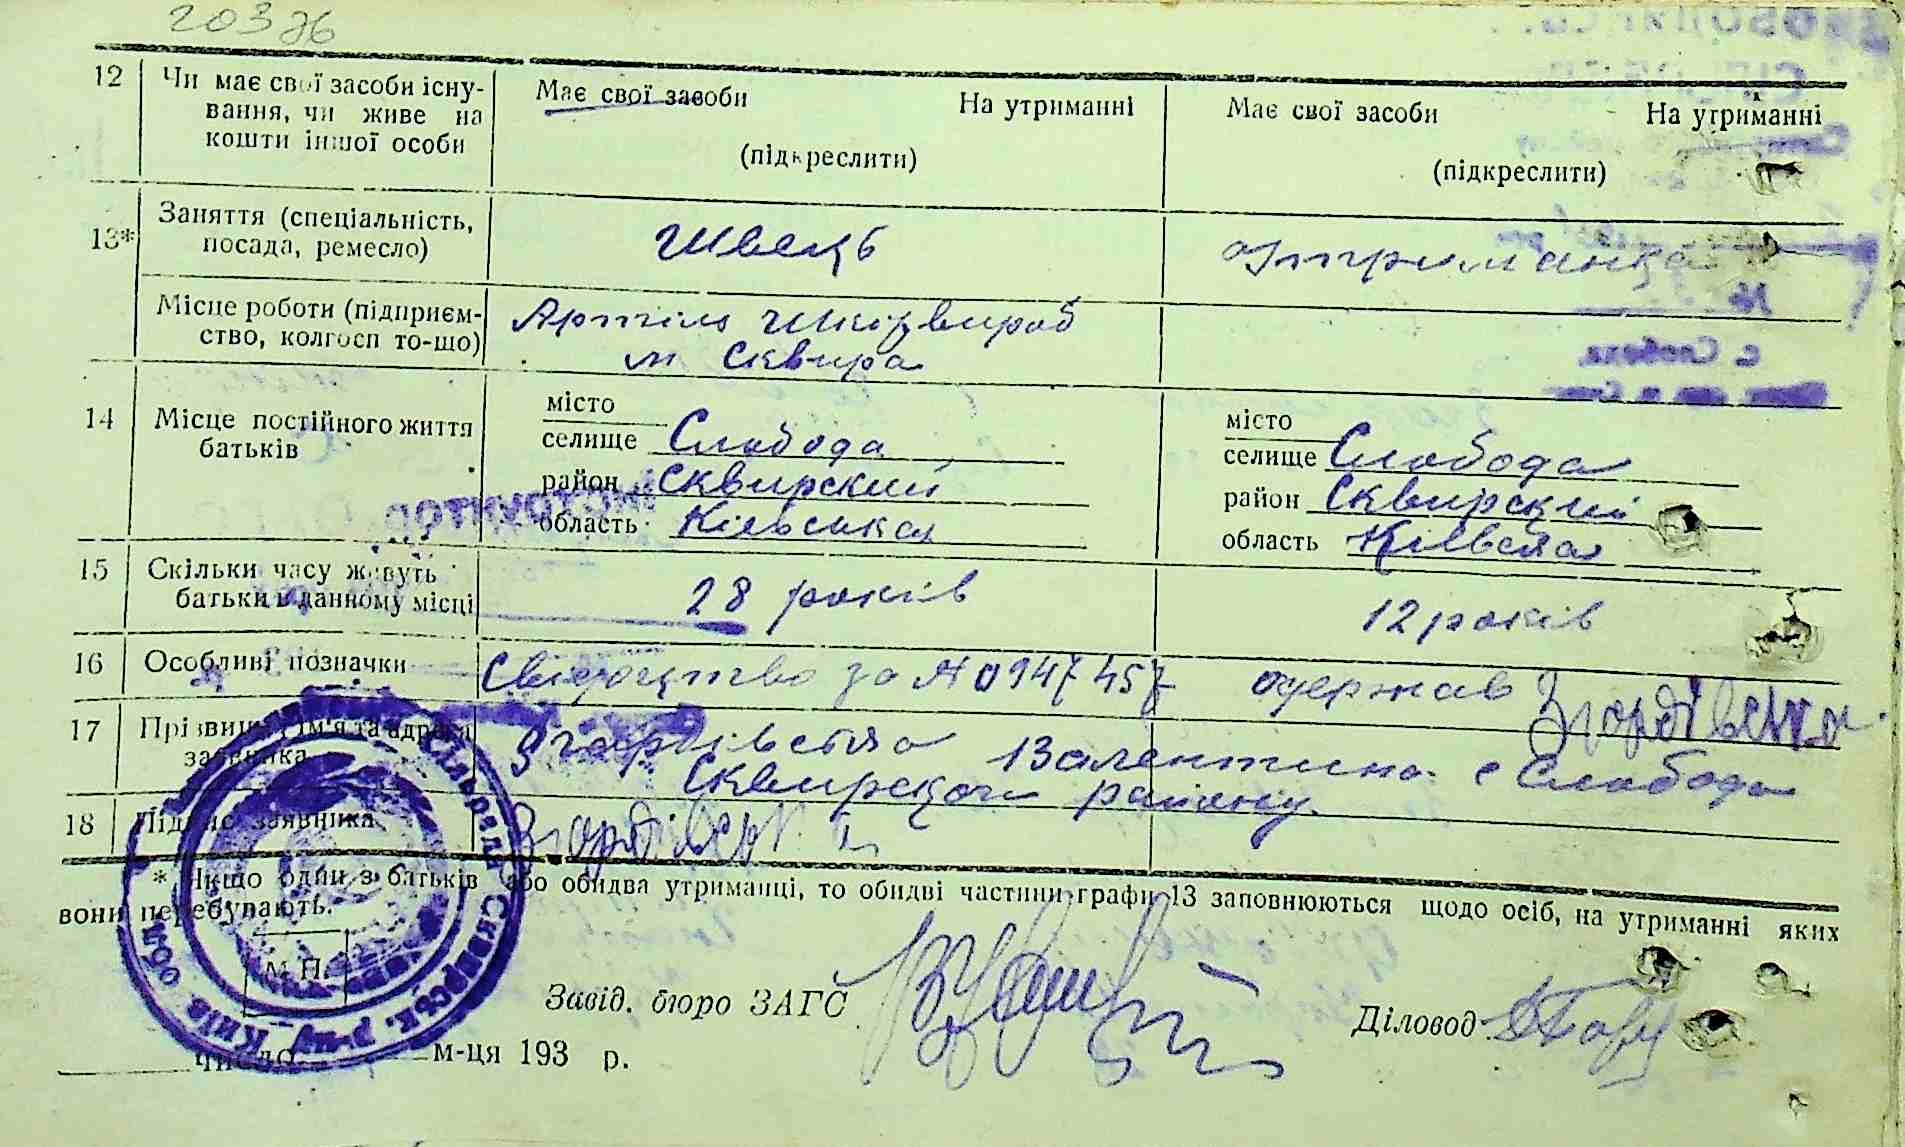 203
12 Чи має свої засоби існу-
вання, чи живе на
кошти іншої особи
Має свої засоби На утриманні
(підкреслити)
Має свої засоби На утриманні
(підкреслити)
13* Заняття (спеціальність,
посада, ремесло)
Швець
Утриманка
Місце роботи (підприєм-
ство, колгосп то-що)
Артіль Шкірвироб
м Сквира
14 Місце постійного життя
батьків
місто
селище Слобода
район Сквирский
область Київська
місто
селище Слобода
район Сквирский
область Київская
15 Скільки часу живуть
батьки в данному місці
28 років
12 років
16 Особливі позначки
Свідоцтво за № 0947457 одержав Згордівська
17 Прізвище, ім'я та адреса
заявника
Згордівская Валентина с Слобода
Сквирского району
18 Підпис заявника
* Якщо один з батьків або обидва утриманці, то обидві частини графи 13 заповнюються щодо осіб, на утриманні яких
вони перебувають.
М. П.
Завід. бюро ЗАГС
Діловод
число м-ця 193 р.
сільрада Сквирськ. р-ну Київ обл